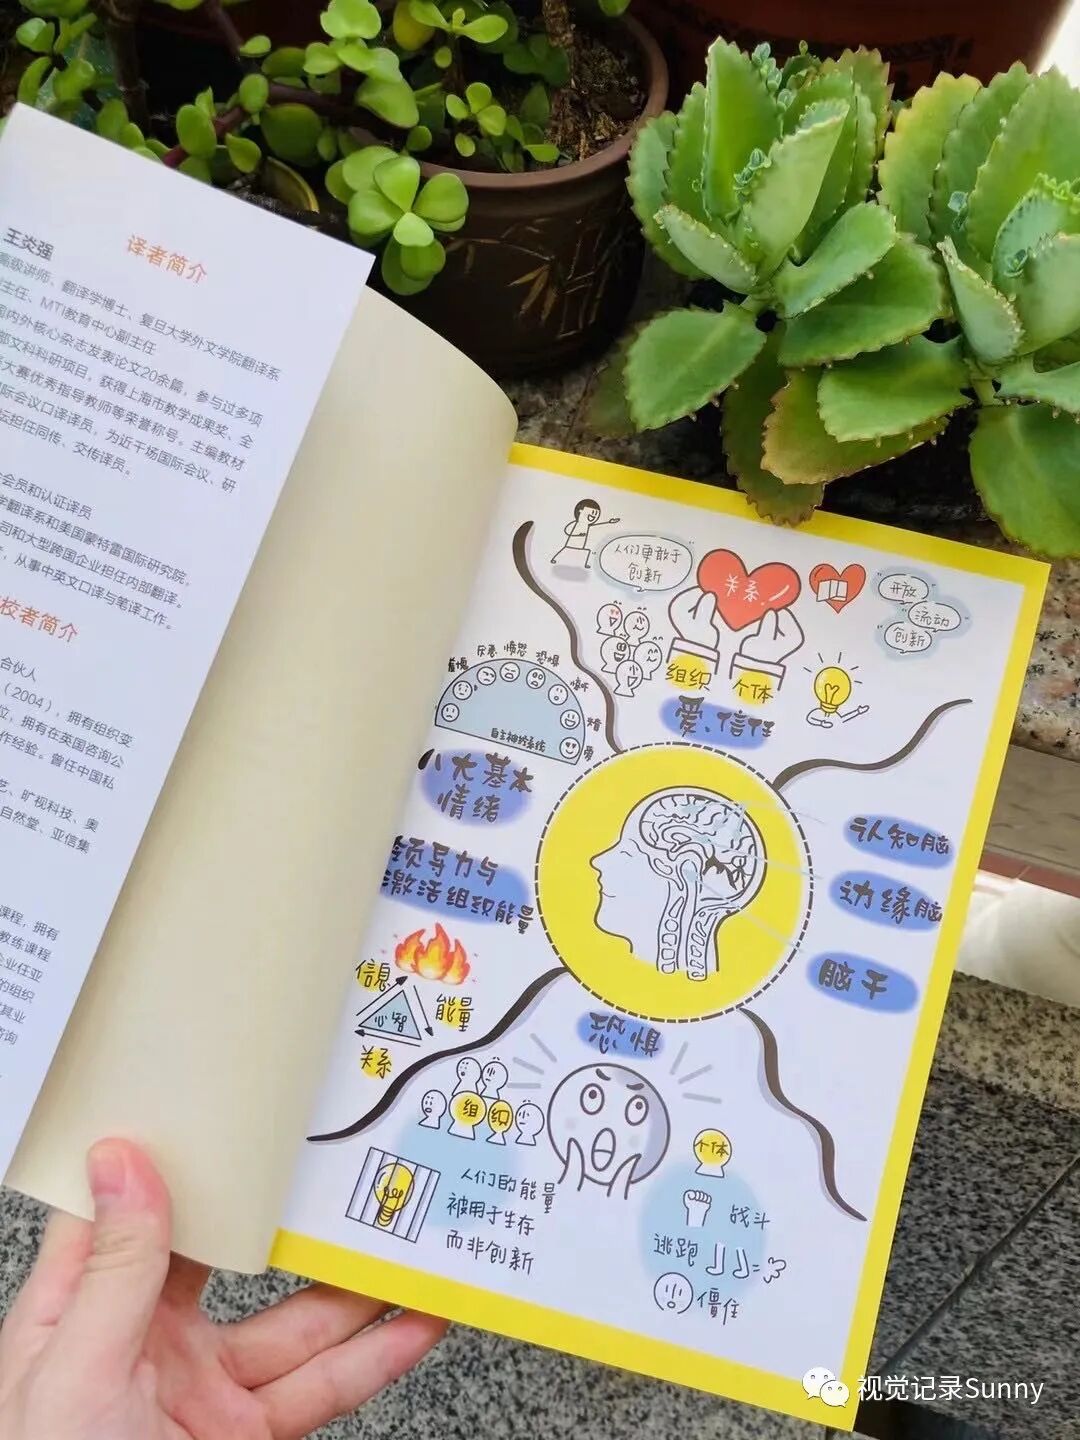 译者简介
王炎强
高级讲师、翻译学博士、复旦大学外文学院翻译系
主任、MTI教育中心副主任
国内外核心杂志发表论文20余篇，参与过多项
部文科科研项目，获得上海市教学成果奖、全
大赛优秀指导教师等荣誉称号。主编教材
际会议口译译员，为近千场国际会议、研
坛担任同传、交传译员。
会员和认证译员
学翻译系和美国蒙特雷国际研究院，
司和大型跨国企业担任内部翻译。
，从事中英文口译与笔译工作。
校者简介
合伙人
（2004），拥有组织变
位，拥有在英国咨询公
作经验。曾任中国私
艺、旷视科技、奥
自然堂、亚信集
课程，拥有
教练课程
企业任亚
的组织
其业
咨询
人们更敢于
创新
关系！
开放
流动
创新
组织
个体
爱、信任
厌恶
愤怒
恐惧
羞愧
惊吓
爱
自主神经系统
八大基本
情绪
领导力与
激活组织能量
信息
能量
心智
关系
认知脑
边缘脑
脑干
恐惧
组织
人们的能量
被用于生存
而非创新
个体
战斗
逃跑
僵住
视觉记录Sunny